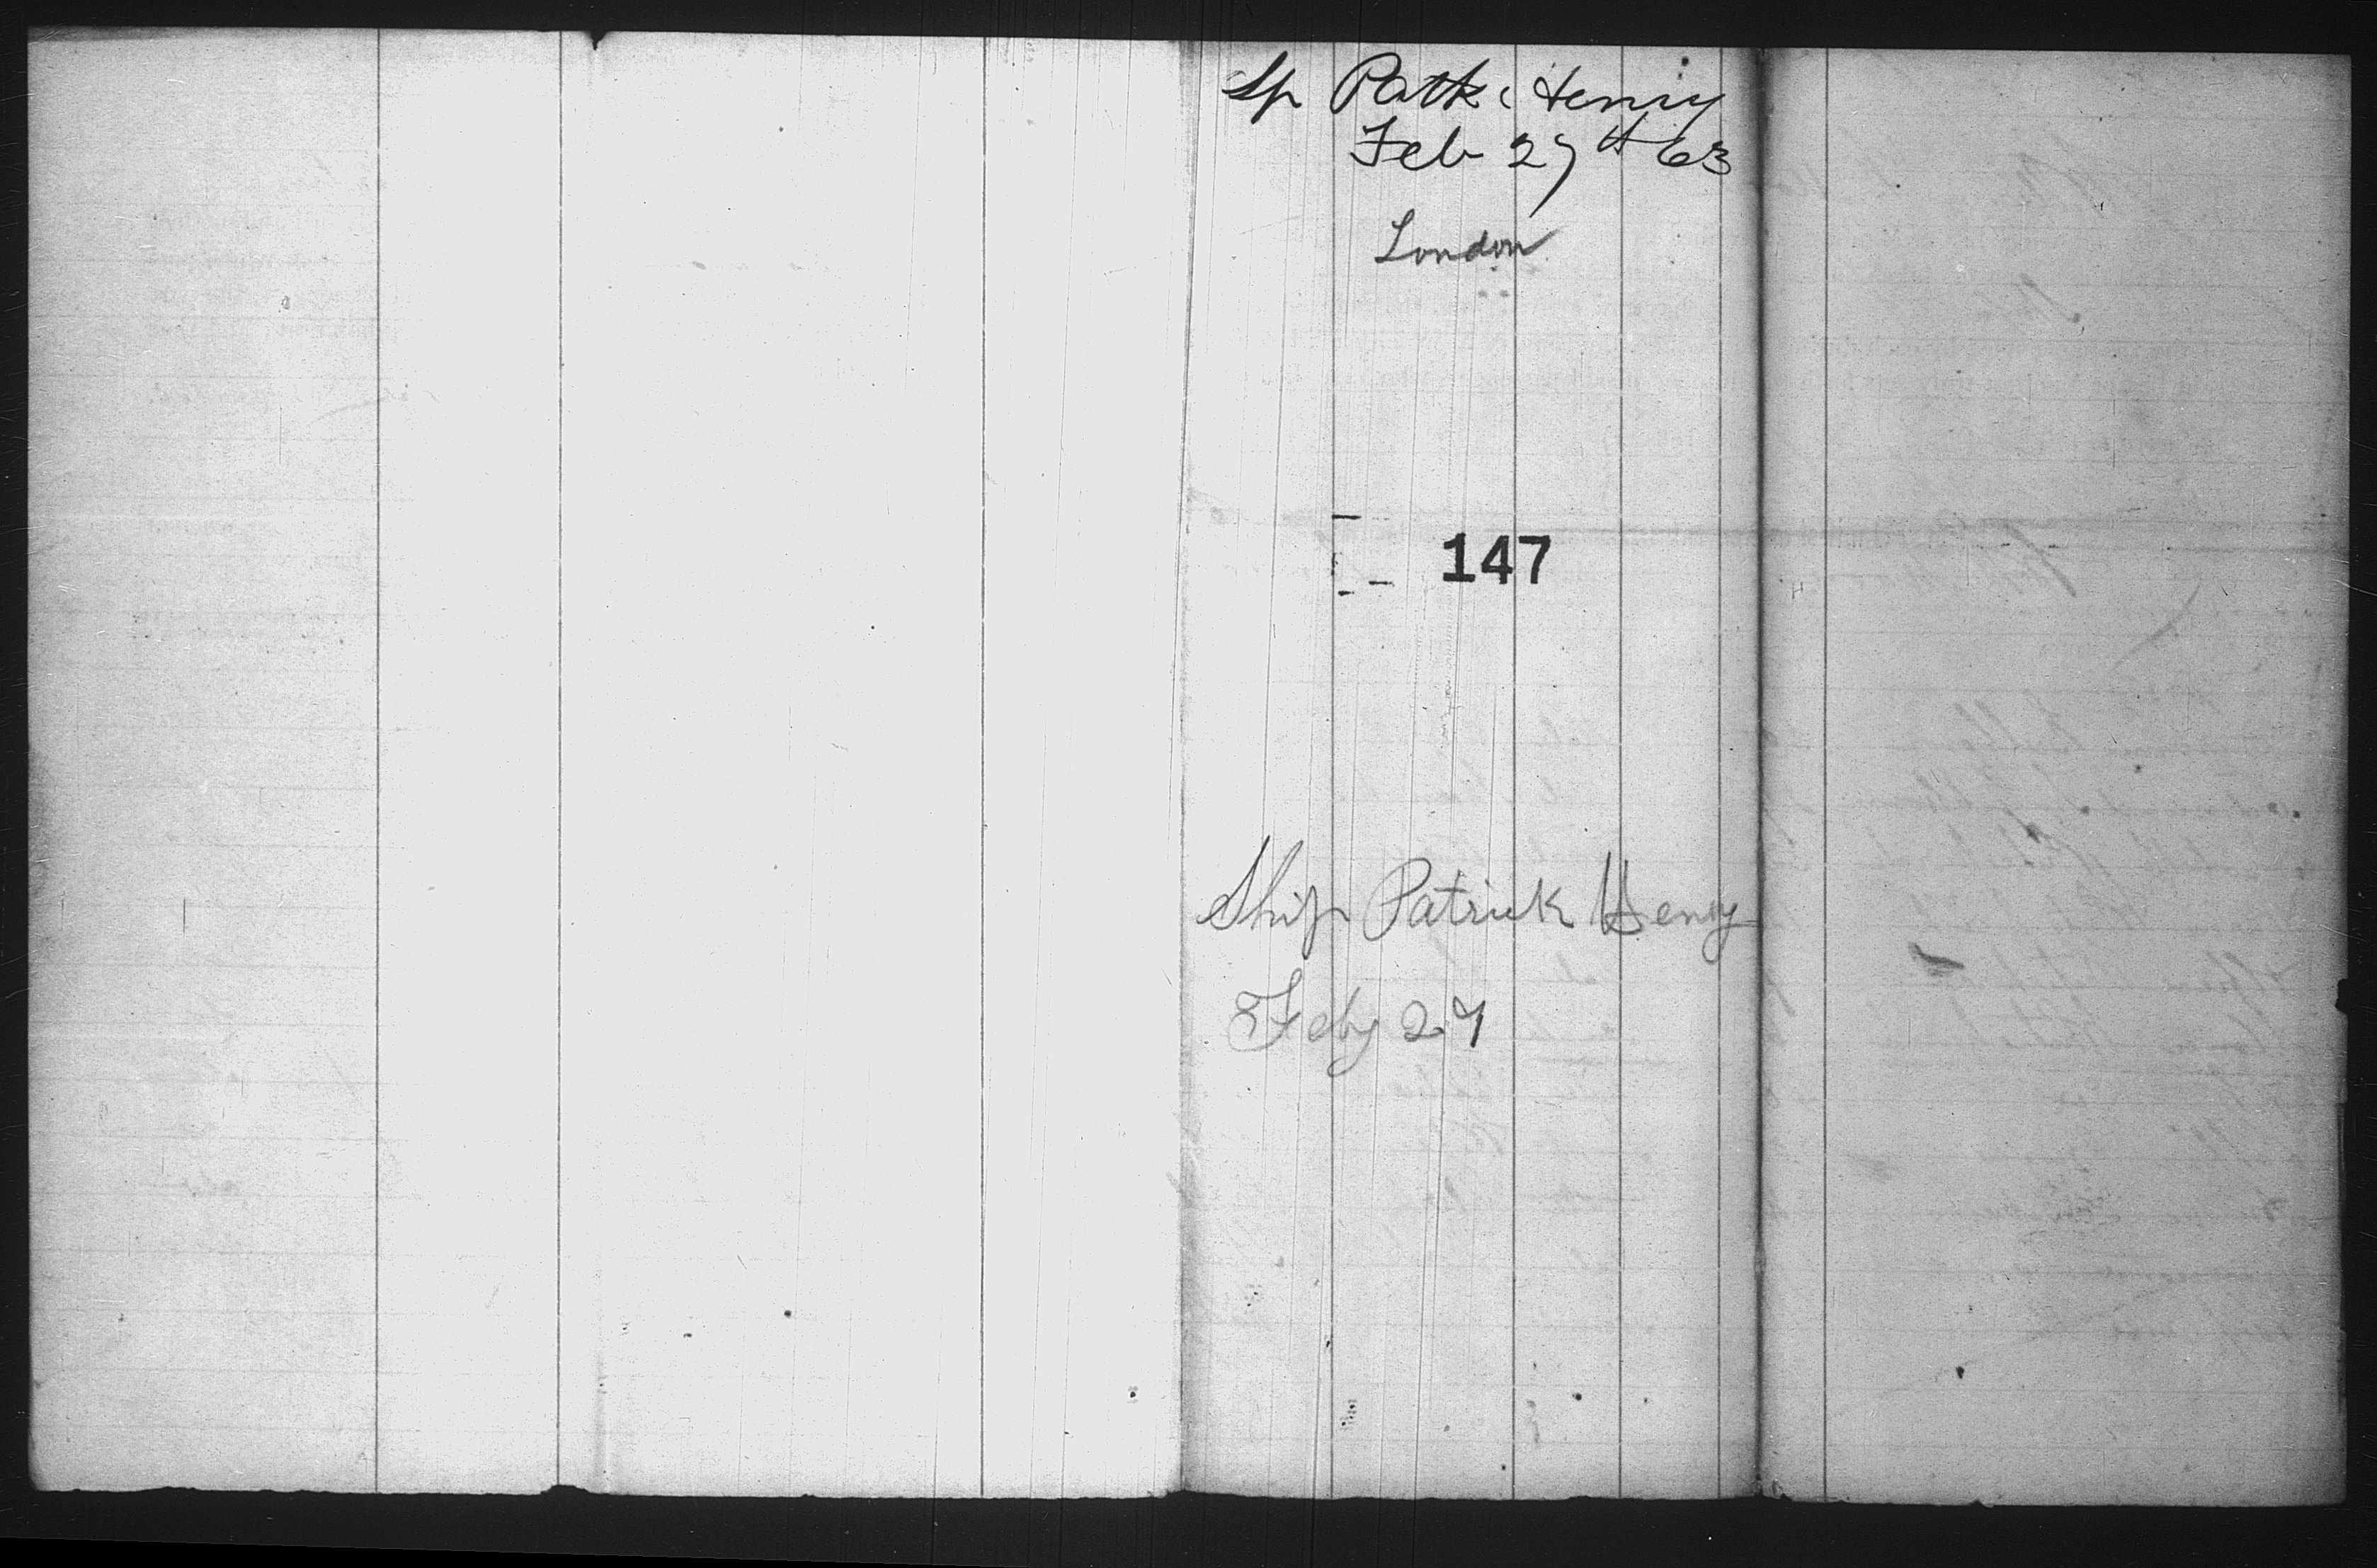 Sp Patk Henry
Feb 27th 63
London
147
Ship Patrick Henry
Feby 27